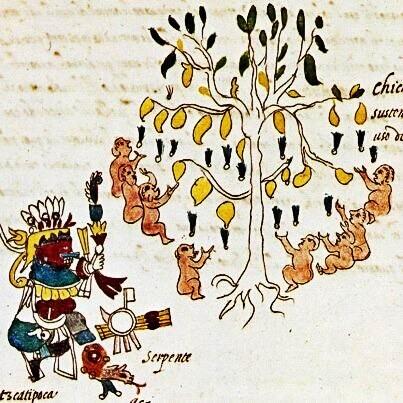 chic
susten
uso di
Serpente
tzcatlipoca